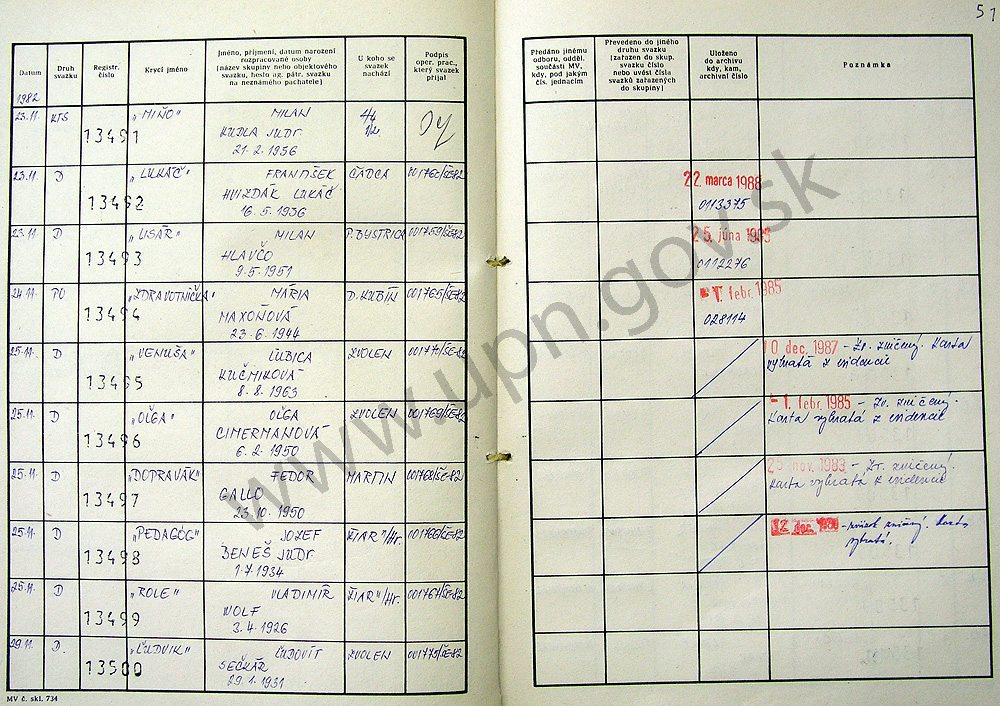 51
Datum
Druh svazku
Registr. číslo
Krycí jméno
Jméno, příjmení, datum narození rozpracované osoby (název skupiny nebo objektového svazku, heslo ag. pátr. svazku na neznámého pachatele)
U koho se svazek nachází
Podpis oper. prac., který svazek přijal
Předáno jinému odboru, odděl. součásti MV, kdy, pod jakým čís. jednacím
Převedeno do jiného druhu svazku (zařazen do skup. svazku číslo nebo uvést čísla svazků zařazených do skupiny)
Uloženo do archivu kdy, kam, archivní číslo
Poznámka
1982
23.11. KTS 13491 „MIŇO" MILAN
KUDLA JUDr.
21. 2. 1956
23.11. D 13492 „LUKÁČ" FRANTIŠEK ČADCA 001760/ŠE-82
HVIZDÁK LUKÁČ
16. 5. 1936
22. marca 1988
0113375
23.11. D 13493 MILAN P. BYSTRICA 001759/ŠE-82
HLAVČO
9. 5. 1951
25. júna
0112276
24.11. PO 13494 „ZDRAVOTNÍČKA" MÁRIA D. KUBÍN 001765/ŠE-82
MAXOŇOVÁ
23. 6. 1944
-1. febr. 1985
028114
25.11. D 13495 „VENUŠA" ĽUBICA ZVOLEN 001770/ŠE-82
KUČMIKOVÁ
8. 8. 1963
10 dec. 1987 - Zv. zničený. Karta
vybratá z evidencie
25.11. D 13496 „OĽGA" OĽGA ZVOLEN 001769/ŠE-82
CIMERMANOVÁ
6. 2. 1950
-1. febr. 1985 - Zv. zničený.
Karta vybratá z evidencie
25.11. D 13497 „DOPRAVÁK" FEDOR MARTIN 001768/ŠE-82
GALLO
23. 10. 1950
nov. 1983 - Zv. zničený.
Karta vybratá z evidencie
25.11. D 13498 „PEDAGÓG" JOZEF ŽIAR n/Hr. 001766/ŠE-82
BENEŠ JUDr.
1. 7. 1934
12 dec. - zväzok zničený. Karta
vybratá.
25.11. D 13499 „ROLE" VLADIMÍR ŽIAR n/Hr. 001767/ŠE-82
WOLF
3. 4. 1926
29.11. D. 13500 „ĽUDVIK" ĽUDOVÍT ZVOLEN 001775/ŠE-82
SEČKÁR
29. 1. 1931
MV č. skl. 734
www.upn.gov.sk